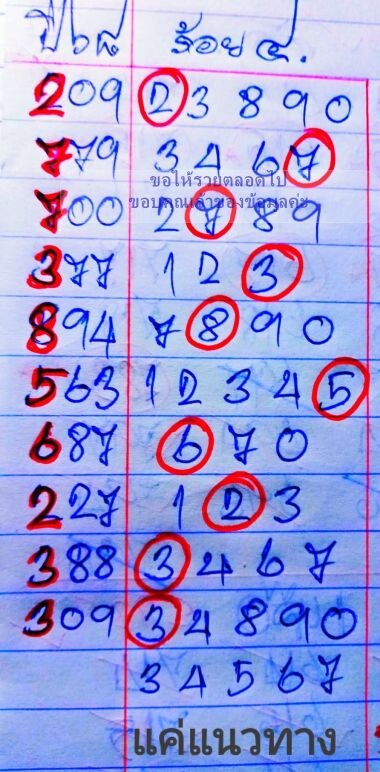 ร้อย ๔.
209 2 3 8 9 0
779 3 4 6 7
ขอให้รวยตลอดไป
ขอบคุณเจ้าของข้อมูลค่ะ
700 2 7 8 9
377 1 2 3
894 7 8 9 0
563 1 2 3 4 5
687 6 7 0
227 1 2 3
388 3 4 6 7
309 3 4 8 9 0
3 4 5 6 7
แค่แนวทาง